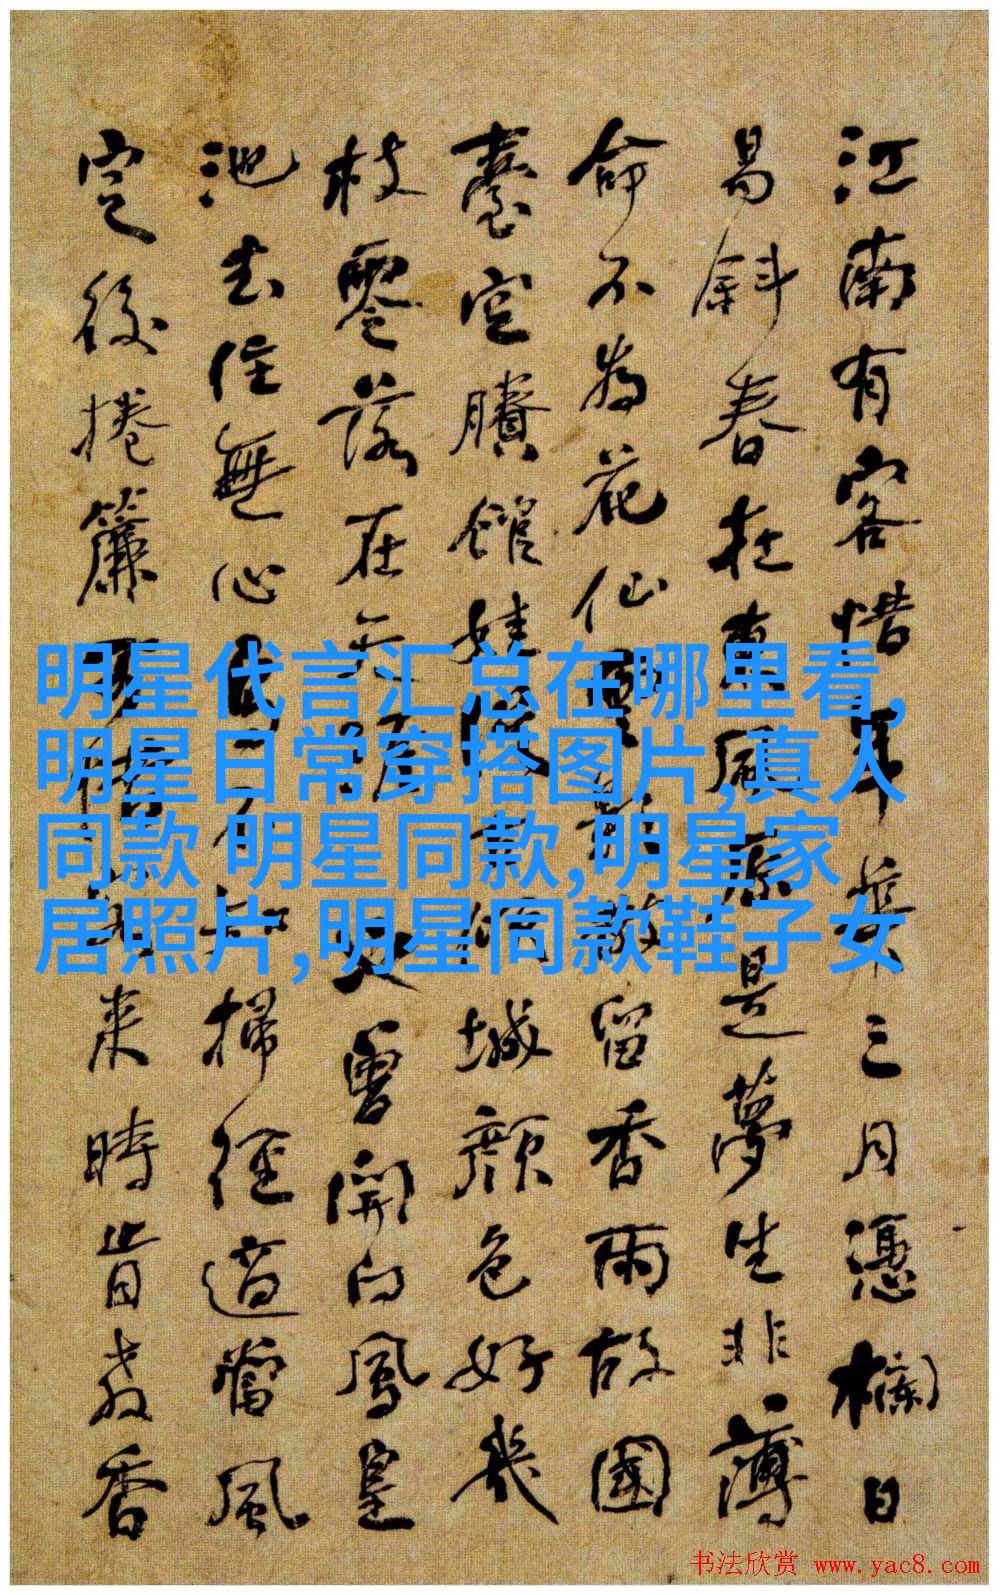 江南有客惜年華三月憑欄日
易斜春在東風原是夢生非薄
命不為花仙散留香雨故國
臺空賸館娃城顏色好幾
枝零落在天曾開向鳳皇
池去住無心知掃徑適當風
定後捲簾惜來時昔教香
明星代言汇总在哪里看,
明星日常穿搭图片,真人
同款 明星同款,明星家
居照片,明星同款鞋子女
书法欣赏 www.yac8.com